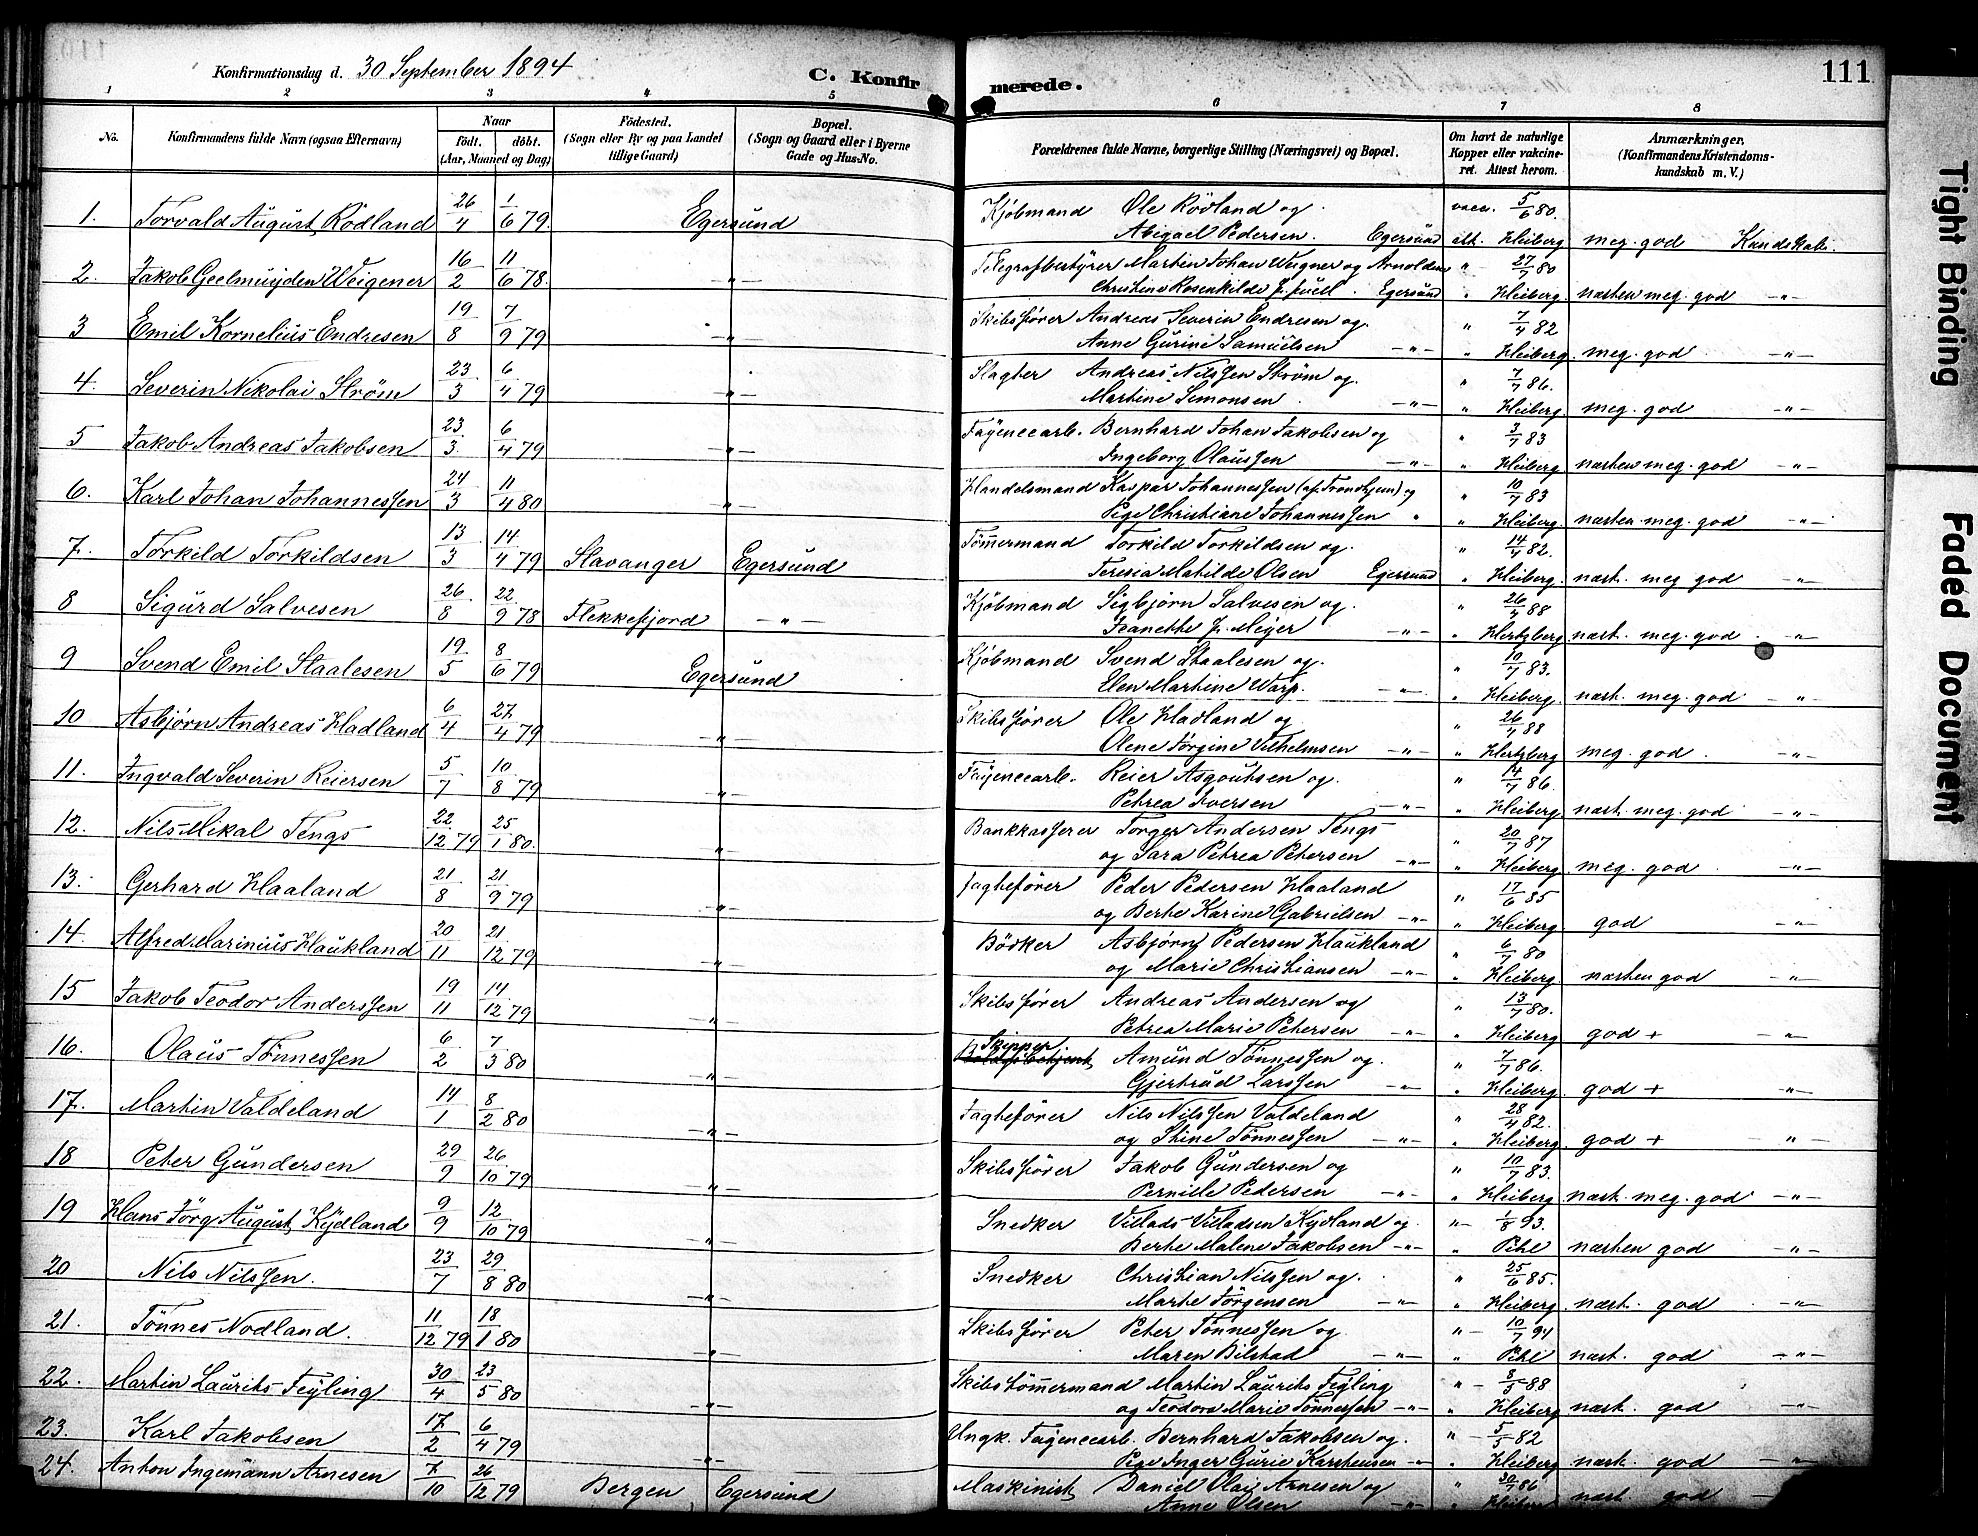 Konfirmationsdag d. 30 September 1894 C. Konfirmerede. 111
1 2 3 4 5 6 7 8
No. Konfirmandens fulde Navn (ogsaa Efternavn) Naar født. døbt. (Aar, Maaned og Dag) Fødested. (Sogn eller By og paa Landet tillige Gaard) Bopæl. (Sogn og Gaard eller i Byerne Gade og Hus-No. Forældrenes fulde Navne, borgerlige Stilling (Næringsvei) og Bopæl. Om havt de naturlige Kopper eller vakcineret. Attest herom. Anmærkninger. (Konfirmandens Kristendomskundskab m. V.)
1. Torvald August Rödland 26/4 1/6 79. Egersund Kjöbmand Ole Rödland og vacc. 5/6 80.
Abigael Pedersen. Egersund att. Heiberg meg. god Kundskab.
2. Jakob Geelmuijden Weigener 16/2 11/6 78. -"- Telegrafbestyrer Martin Johan Weigner og Arnoldine " 27/7 80
Christine Rosenkilde f. Juell. Egersund " Heiberg. næsten meg. god -"-
3 Emil Kornelius Endresen 19/8 7/9 79 -"- Skibsfører Andreas Severin Endresen og. " 7/4 82
Anne Gurine Samuelsen -"- " Heiberg. meg. god -"-
4. Severin Nikolai Strøm 23/3 6/4 79 -"- Slagter Andreas Nilssen Strøm og. " 7/7 86.
Martine Simonsen -"- " Heiberg meg. god -"-
5 Jakob Andreas Jakobsen 23/3. 6/4 79 -"- Fayencearb. Bernhard Johan Jakobsen og " 3/7 83
Ingeborg Olaussen -"- " Heiberg næsten meg. god -"-
6. Karl Johan Johannessen 24/3 11/4 80 -"- Handelsmand Kaspar Johannessen (af Trondhjem) og " 10/7 83
Pige Christiane Johannessen " " Heiberg næsten meg. god -"-
7. Torkild Torkildsen 13/3 14/4 79 Stavanger Egersund Tömmermand Torkild Torkildsen og. " 14/7 82.
Teresia Matilde Olsen Egersund " Heiberg. næst. meg god -"-
8 Sigurd Salvesen 26/8 22/9 78 Flekkefjord -"- Kjöbmand Sigbjørn Salvesen og. " 26/7 88
Jeanette f. Meyer -"- " Hertzberg næst. meg. god. -"-
9 Svend Emil Staalesen 19/5 8/6 79 Egersund Kjöbmand Svend Staalesen og. " 10/7 83.
Elen Martine Warp. -"- " Heiberg. næst. meg. god -"-
10 Asbjørn Andreas Hadland 6/4 27/4 79 -"- Skibsfører Ole Hadland og " 26/7 88
Olene Jørgine Vilhelmsen -"- " Hertzberg meg. god. -"-
11. Ingvald Severin Reiersen 5/7 10/8 79 -"- Fayencearb. Reier Asgoutsen og. " 14/7 86.
Petrea Iversen -"- " Heiberg næst. meg. god -"-
12. Nils Mikal Tengs 22/12 79 25/1 80. -"- Bankkasserer Torger Andersen Tengs " 20/7 87
og Sara Petrea Petersen -"- " Heiberg meg. god -"-
13. Gerhard Haaland 21/8 21/9 79 -"- Jagtefører Peder Pedersen Haaland " 17/6 85
og Berte Karine Gabrielsen -"- " Heiberg god -"-
14. Alfred Marinius Haukland 20/11 21/12 79 -"- Bödker Asbjørn Pedersen Haukland " 6/7 80
og Marie Christiansen -"- " Heiberg næsten god -"-
15 Jakob Teodor Anderssen 19/11 14/12 79 -"- Skibsfører Andreas Andersen og " 13/7 80.
Petrea Marie Petersen -"- " Heiberg god + -"-
16. Olaus Tönnessen 6/2 7/3 80 -"- Skipper Amund Tönnessen og. " 7/7 86.
Gjertrud Larssen -"- " Heiberg. god + -"-
17. Martin Valdeland 14/1 8/2 80 -"- Jagtefører Nils Nilssen Valdeland " 28/4 82.
og Stine Tönnessen -"- " Heiberg god + -"-
18 Peter Gundersen 29/9 26/10 79 -"- Skibsfører Jakob Gundersen og " 10/7 83.
Pernille Pedersen -"- " Heiberg næst. meg. god -"-
19 Hans Jörg August Kydland 9/9 12/10 79 -"- Snedker Villads Villadsen Kydland og "- 1/8 93.
Berte Malene Jakobsen -"- " Pihl næsten god -"-
20 Nils Nilssen. 23/7 29/8 80 -"- Snedker Christian Nilssen og. " 25/6 85.
Marte Jørgensen -"- " Heiberg. næst. god -"-
21. Tönnes Nodland. 11/12 79 18/1 80 -"- Skibsfører Peter Tönnessen og "- 10/7 94
Maren Bilstad -"- " Pihl næst. god -"-
22. Martin Laurits Feyling 30/4 23/5 80 -"- Skibstömmermand Martin Laurits Feyling "- 8/5 88
og Teodora Marie Tönnessen -"- " Heiberg næst. god -"-
23. Karl Jakobsen 17/2 6/4 79 -"- Ungk. Fayencearb. Bernhard Jakobsen og. "- 5/5 82
Pige Inger Gurie Karstensen -"- " Heiberg næst. god -"-
24. Anton Ingemann Arnesen 7/10 26/12 79 Bergen Egersund Maskinist Daniel Olai Arnesen og " 30/7 86
Anne Olsen -"- " Heiberg næst. god -"-
Tight Binding
Faded Document